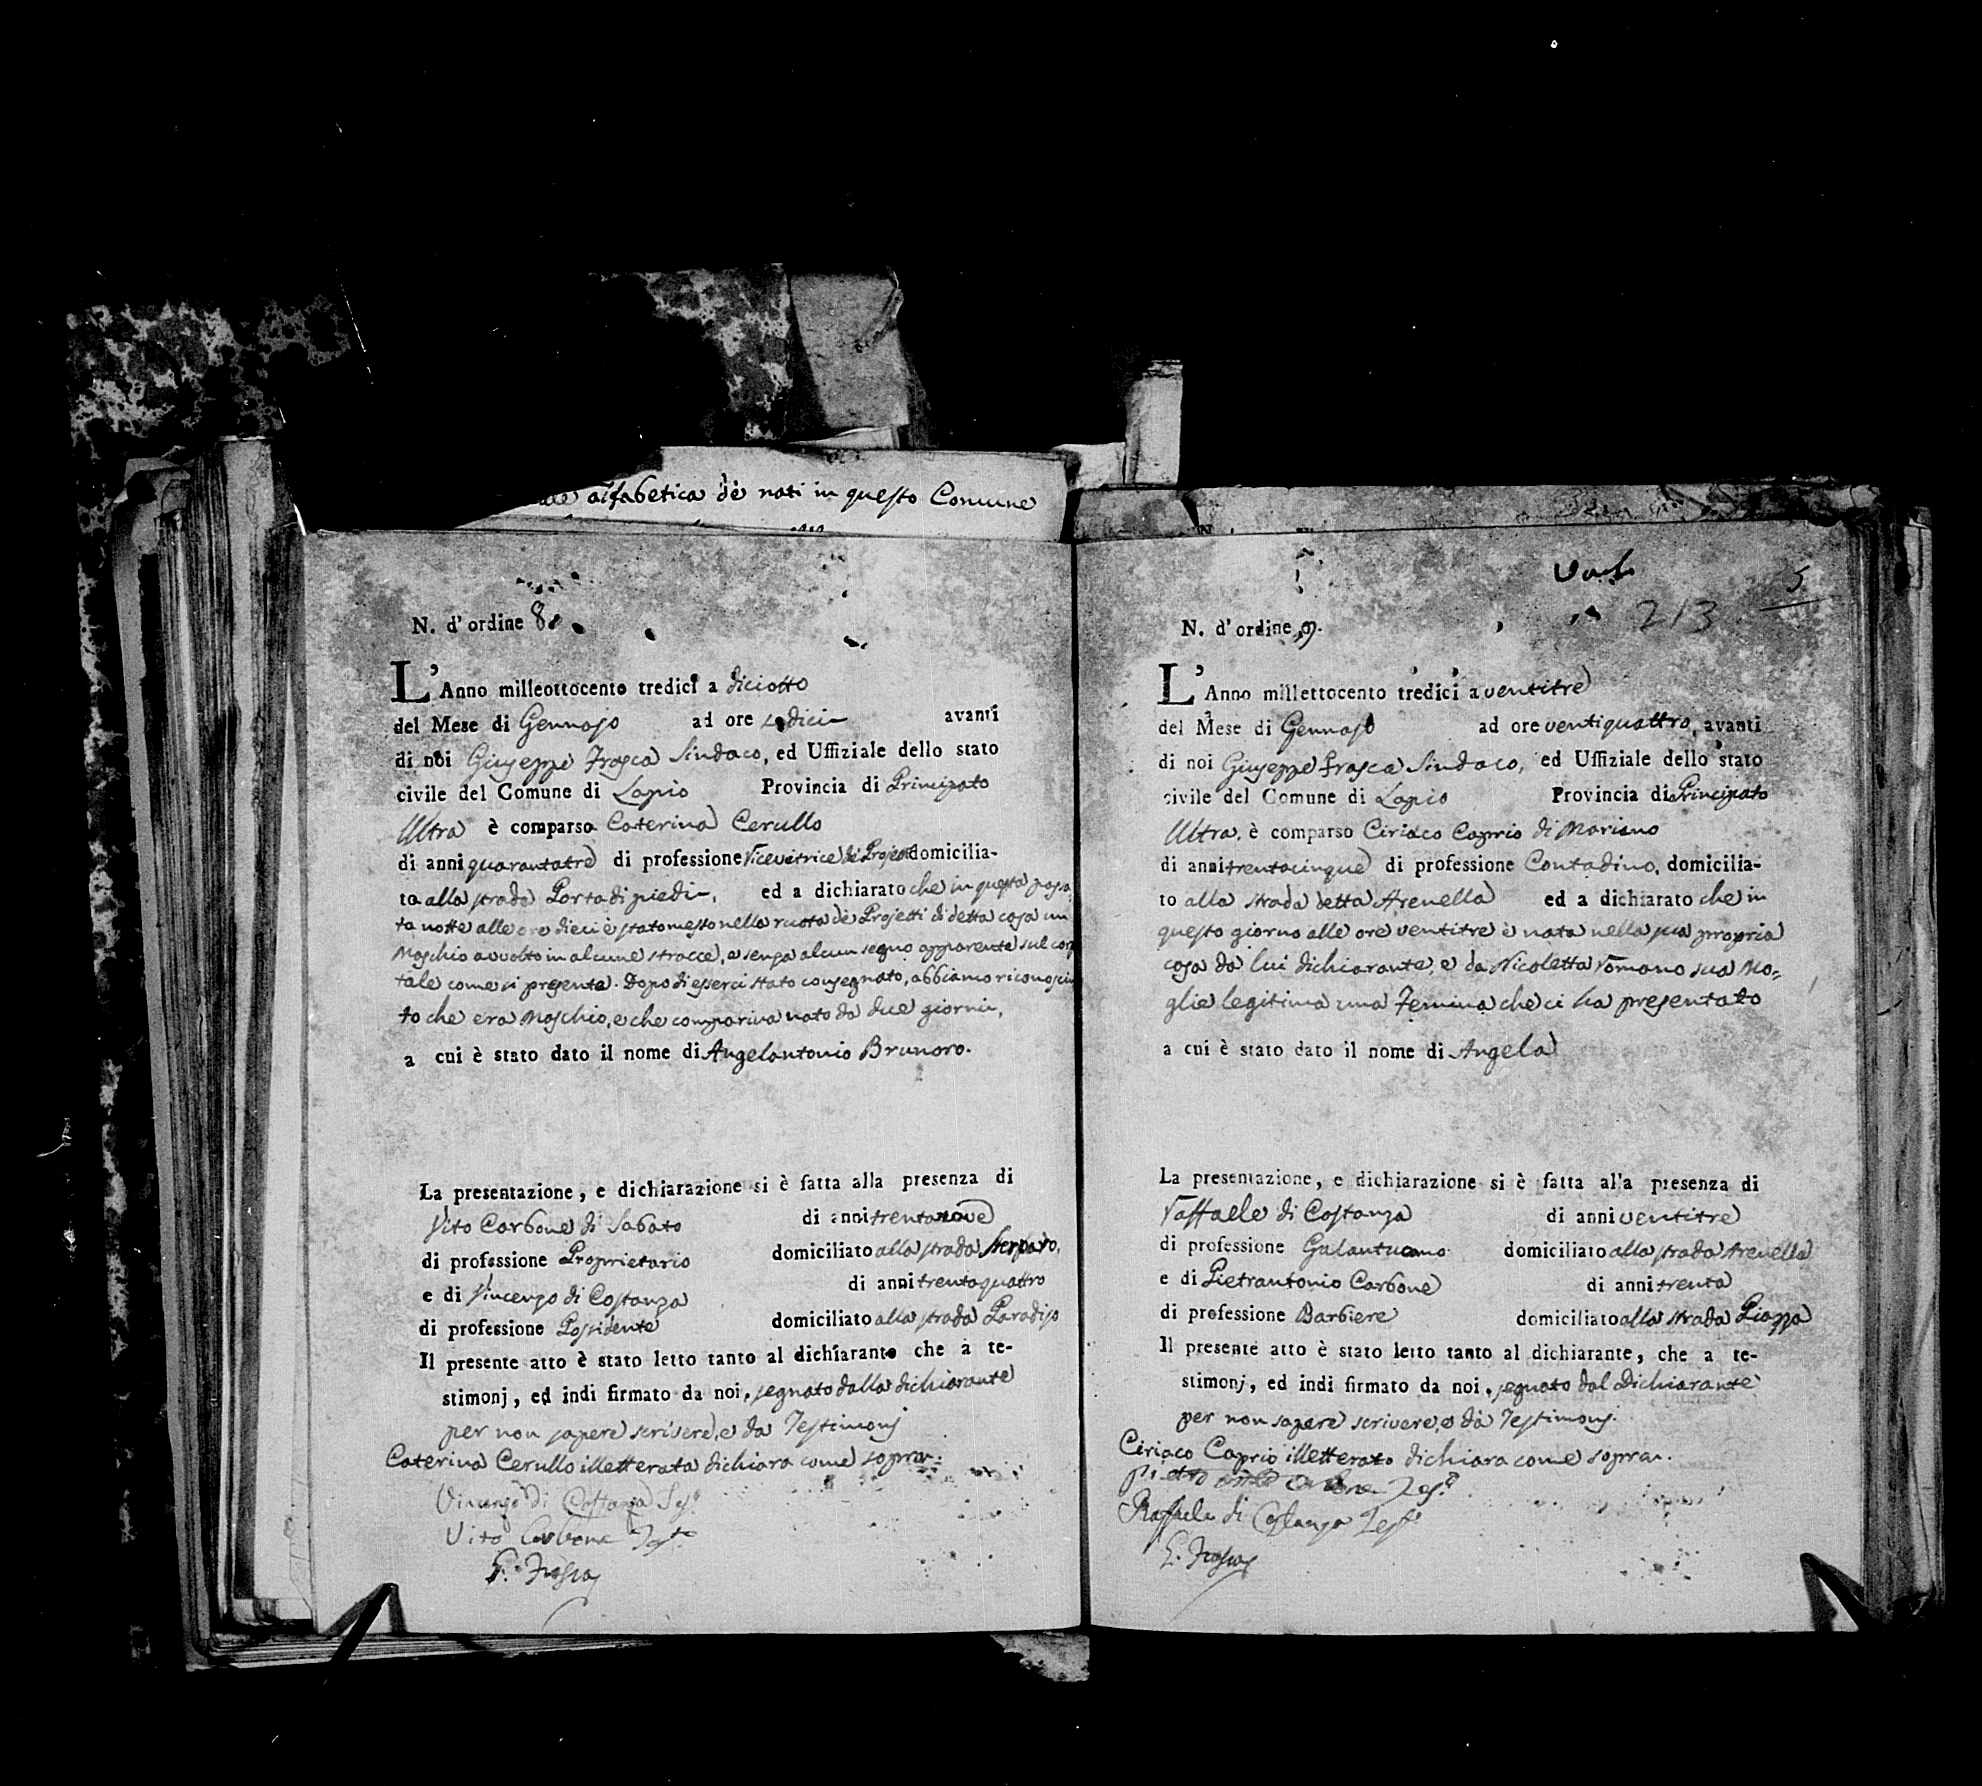 alfabetica de nati in questo Comune
N. d'ordine 8.
L'Anno milleottocento tredici a diciotto
del Mese di Gennajo ad ore sedici avanti
di noi Giuseppe Frasca Sindaco, ed Uffiziale dello stato
civile del Comune di Lapio Provincia di Principato
Ultra è comparsa Caterina Cerullo
di anni quarantatre di professione Ricevitrice de Projetti domicilia-
ta alla strada Porta di piedi, ed a dichiarato che in questa passa
ta notte alle ore dieci è stato messo nella ruota de Projetti di detta casa un
Maschio avvolto in alcune stracce, e senza alcun segno apparente sul corpo
tale come si presenta. Dopo di esserci stato consegnato, abbiamo riconosciu
to che era Maschio, e che compariva nato da due giorni,
a cui è stato dato il nome di Angelantonio Brunoro.
La presentazione, e dichiarazione si è fatta alla presenza di
Vito Carbone di Sabato di anni trentanove
di professione Proprietario domiciliato alla strada Sterparo,
e di Vincenzo di Costanza di anni trentaquattro
di professione Possidente domiciliato alla strada Paradiso
Il presente atto è stato letto tanto al dichiarante che a te-
stimonj, ed indi firmato da noi, segnato dalla dichiarante
per non sapere scrivere, e da Testimonj
Caterina Cerullo illetterata dichiara come sopra.
Vincenzo di Costanza Tes.º
Vito Carbone Tes.to
G. Frasca
5
213
N. d'ordine 9.
L'Anno millettocento tredici a ventitre
del Mese di Gennajo ad ore ventiquattro, avanti
di noi Giuseppe Frasca Sindaco, ed Uffiziale dello stato
civile del Comune di Lapio Provincia di Principato
Ultra, è comparso Ciriaco Caprio di Mariano
di anni trentacinque di professione Contadino, domicilia-
to alla strada detta Arenella ed a dichiarato che in
questo giorno alle ore ventitre è nata nella sua propria
casa da lui dichiarante, e da Nicoletta Romano sua Mo-
glie legitima una Femina che ci ha presentato
a cui è stato dato il nome di Angela
La presentazione, e dichiarazione si è fatta alla presenza di
Raffaele di Costanza di anni ventitre
di professione Galantuomo domiciliato alla strada Arenella
e di Pietrantonio Carbone di anni trenta
di professione Barbiere domiciliato alla strada Piazza
Il presente atto è stato letto tanto al dichiarante, che a te-
stimonj, ed indi firmato da noi, segnato dal Dichiarante
per non sapere scrivere, e da Testimonj.
Ciriaco Caprio illetterato dichiara come sopra.
Raffaele di Costanza Test.º
G. Frasca